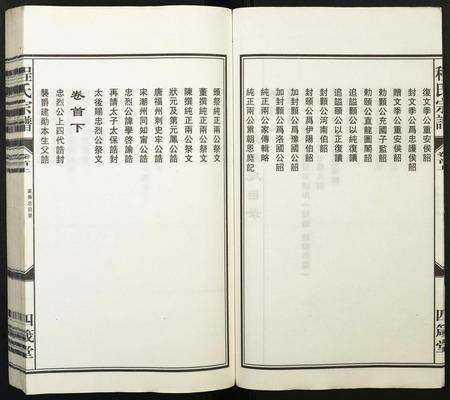 程氏宗譜
卷首二
四箴堂
復文季公重安侯韶
封文季公爲忠護侯韶
贈文季公重安侯韶
勅顥公充國子監韶
勅頤公直龍圖閣韶
追謚顥公以純復議
追謚頤公以正復議
封顥公河南伯韶
封頤公爲伊陽伯韶
加封顥公爲豫國公韶
加封頤公爲洛國公韶
純正兩公家傳輯略
純正兩公累朝恩庥記
頒祭純正兩公祭文
董撰純正兩公祭文
陳撰純正兩公祭文
狀元及第元鳳公誥
唐福州刺史牢公誥
宋潮州同知富公誥
忠烈公諱學啓諭誥
再請太子太保誥封
太後賜忠烈公祭文
卷首下
忠烈公上四代誥封
襲爵建勛本生父誥
程氏宗譜
卷首二
四箴堂